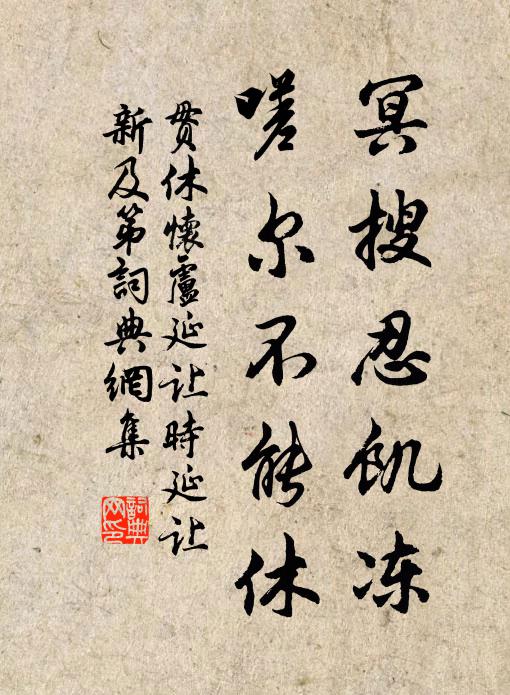 冥搜忍飢冻
嗟尔不能休
贯休懷盧延让時延让
新及第詞典網集
詞典网印